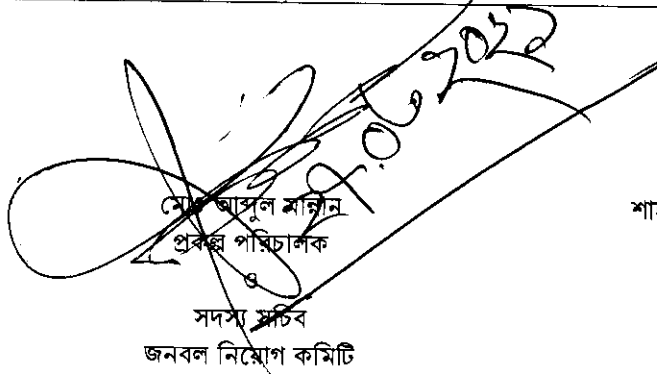 মোঃ আব্দুল মান্নান
প্রকল্প পরিচালক
ও
সদস্য সচিব
জনবল নিয়োগ কমিটি